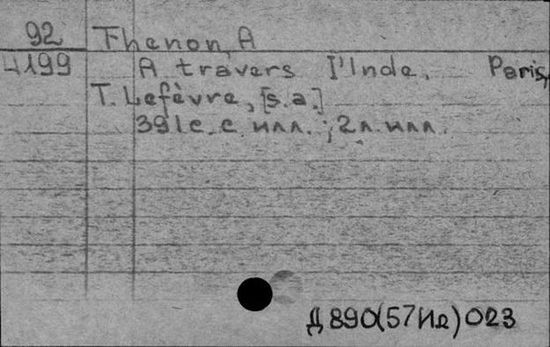 92 Thenon, A
4199 A travers l'Inde. Paris,
T. Lefèvre, [s.a.]
391 с. с илл.; 2 л. илл.
Д 890(57Ив) 023